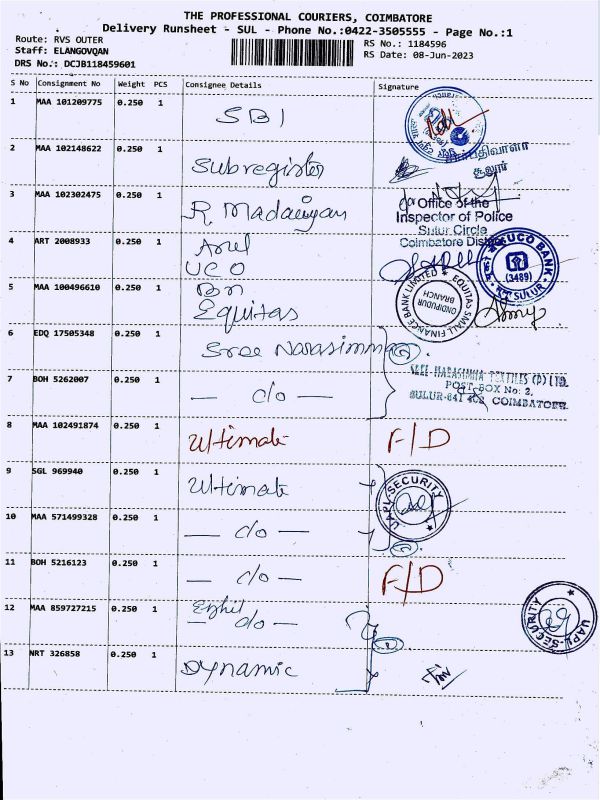 THE PROFESSIONAL COURIERS, COIMBATORE
Delivery Runsheet - SUL - Phone No.:0422-3505555 - Page No.:1
Route: RVS OUTER
Staff: ELANGOVQAN
DRS No.: DCJB118459601
RS No.: 1184596
RS Date: 08-Jun-2023
S No Consignment No Weight PCS Consignee Details Signature
1 MAA 101209775 0.250 1 SBI
2 MAA 102148622 0.250 1 Subregister
சூலூர்
3 MAA 102302475 0.250 1 R. Madaiyan
for Office of the
Inspector of Police
Sulur Circle
Coimbatore District
4 ART 2008933 0.250 1 Arul
UCO
UCO BANK
(3489)
SULUR
5 MAA 100496610 0.250 1 Bn
Equitas
EQUITAS SMALL FINANCE BANK LIMITED
ONDIPUDUR
BRANCH
6 EDQ 17505348 0.250 1 Sree Narasimma
7 BOH 5262007 0.250 1 — do —
SREE NARASIMHA TEXTILES (P) LTD.
POST BOX No: 2,
SULUR-641 402 COIMBATORE.
8 MAA 102491874 0.250 1 Ultimate F/D
9 SGL 969940 0.250 1 Ultimate
UAPL-SECURITY
10 MAA 571499328 0.250 1 — do —
11 BOH 5216123 0.250 1 — do — F/D
12 MAA 859727215 0.250 1 Ezhil
— do —
UAPL-SECURITY
13 NRT 326858 0.250 1 Dynamic